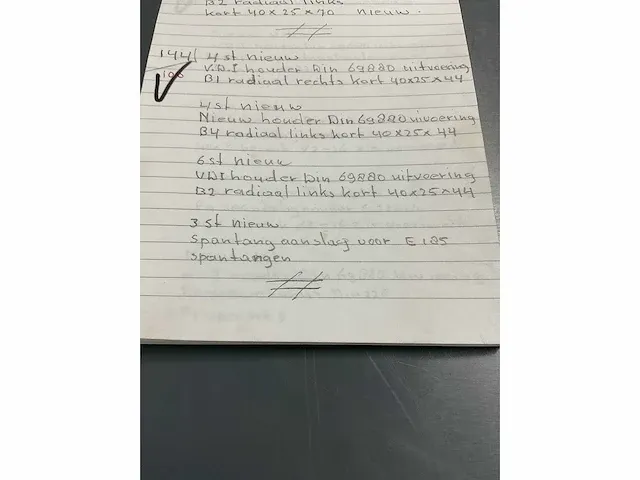 B2 radiaal links
kort 40x25x70 nieuw.
144 4 st nieuw
V.D.I houder Din 69880 uitvoering
B1 radiaal rechts kort 40x25x44
4 st nieuw
Nieuw houder Din 69880 uivoering
B4 radiaal links kort 40x25x44
6 st nieuw
VDI houder Din 69880 uitvoering
B2 radiaal links kort 40x25x44
3 st nieuw
Spantang aanslag voor E 185
spantangen